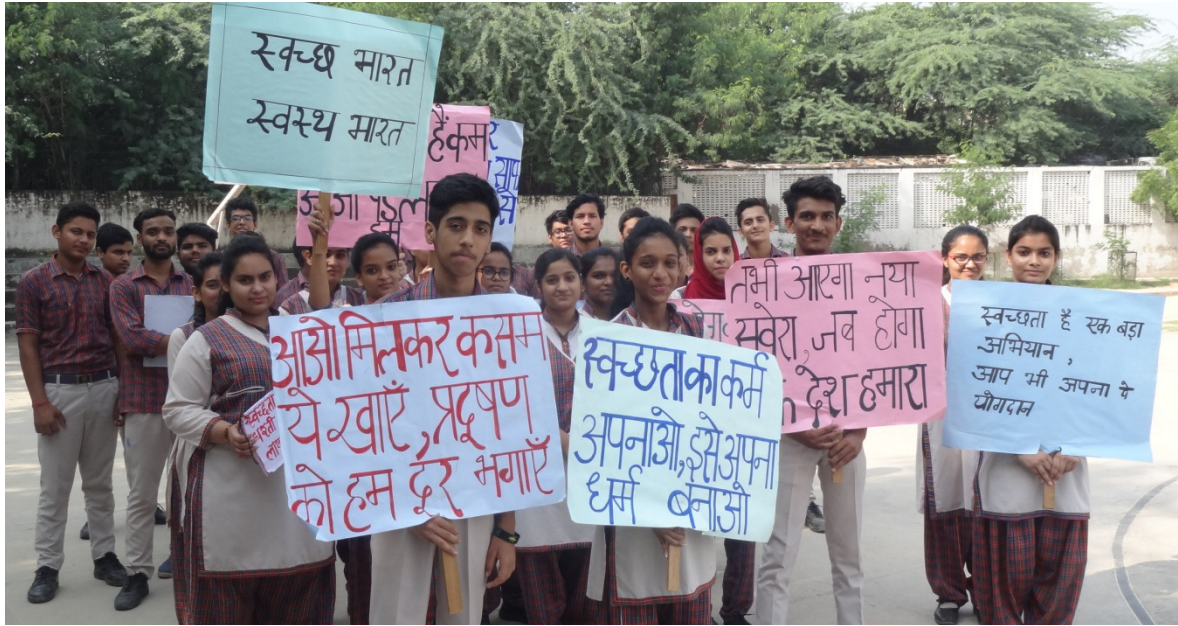 स्वच्छ भारत
स्वस्थ भारत
हैं कम
आओ मिलकर कसम
ये खाएँ, प्रदूषण
को हम दूर भगाएँ
स्वच्छता का कर्म
अपनाओ, इसे अपना
धर्म बनाओ
तभी आएगा नया
सवेरा, जब होगा
देश हमारा
स्वच्छता है एक बड़ा
अभियान,
आप भी अपना दे
योगदान
स्वच्छता